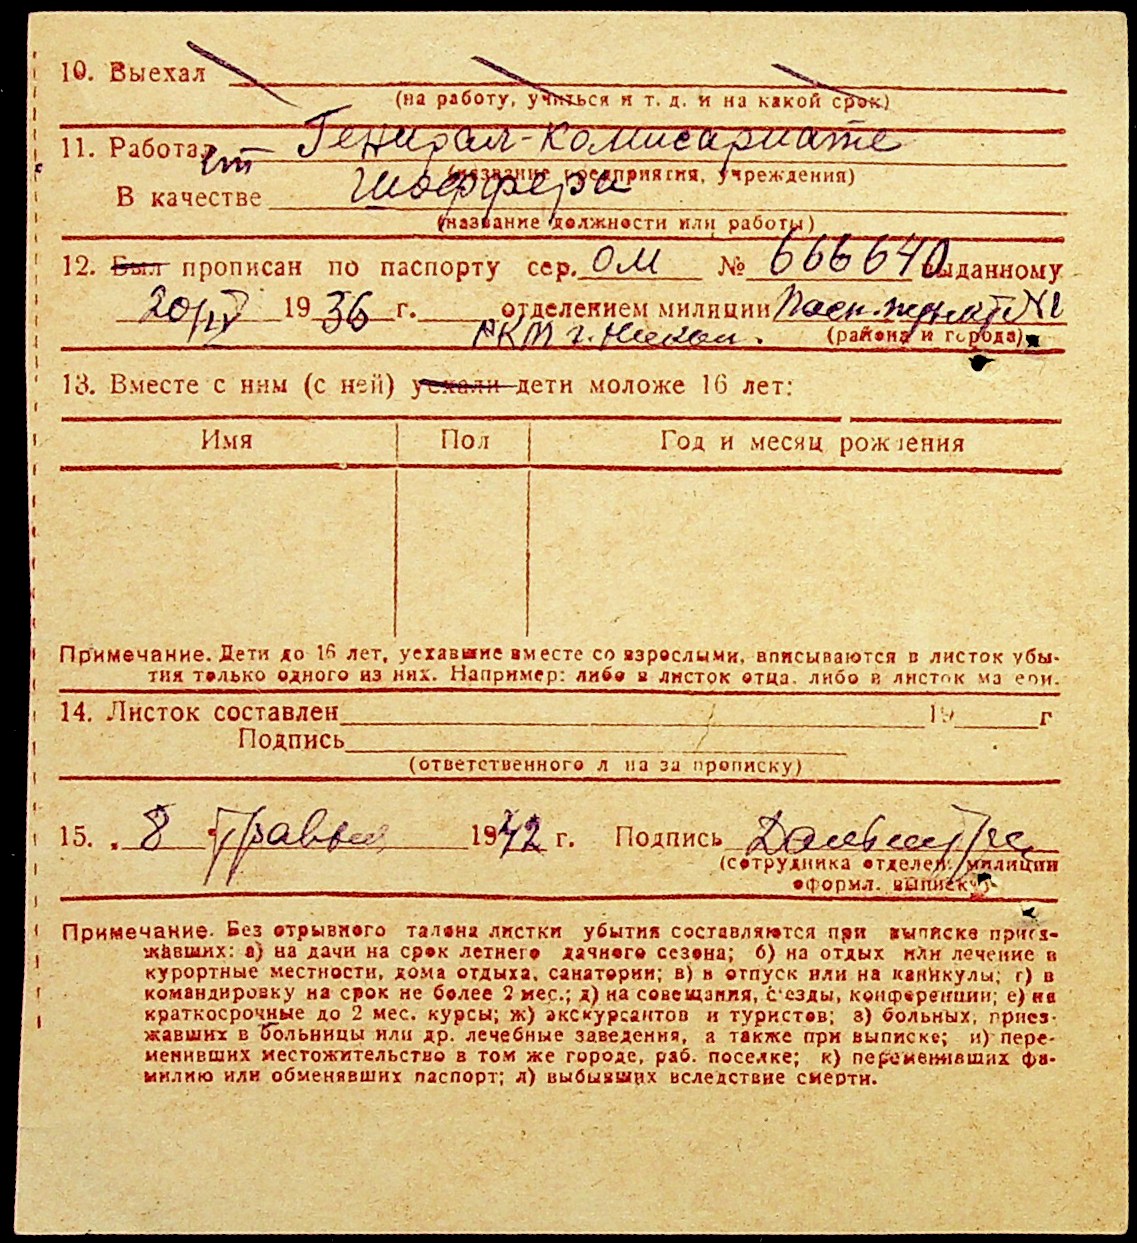 10. Выехал
(на работу, учиться и т. д. и на какой срок)
11. Работает Генирал-Комисариате
(название предприятия, учреждения)
В качестве шоффера
(название должности или работы)
12. Был прописан по паспорту сер. ОМ № 666640 выданному
20/IV 1936 г. отделением милиции Пасп. пункт №1
РКМ г. Никол. (района и города)
13. Вместе с ним (с ней) уехали дети моложе 16 лет:
Имя Пол Год и месяц рождения
Примечание. Дети до 16 лет, уехавшие вместе со взрослыми, вписываются в листок убы-
тия только одного из них. Например: либо в листок отца, либо в листок ма ери.
14. Листок составлен 19 г
Подпись
(ответственного л на за прописку)
15. 8 Травня 1942 г. Подпись
(сотрудника отделен. милиции
оформл. выписку)
Примечание. Без отрывного талона листки убытия составляются при выписке приез-
жавших: а) на дачи на срок летнего дачного сезона; б) на отдых или лечение в
курортные местности, дома отдыха, санатории; в) в отпуск или на каникулы; г) в
командировку на срок не более 2 мес.; д) на совещания, с'езды, конференции; е) на
краткосрочные до 2 мес. курсы; ж) экскурсантов и туристов; з) больных, приез-
жавших в больницы или др. лечебные заведения, а также при выписке; и) пере-
менивших местожительство в том же городе, раб. поселке; к) переменивших фа-
милию или обменявших паспорт; л) выбывших вследствие смерти.